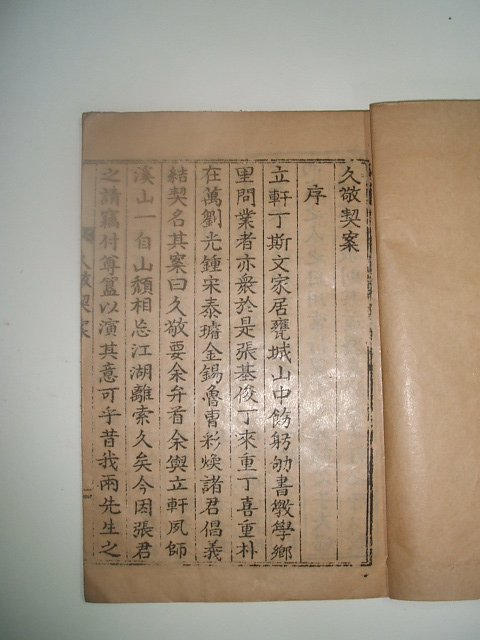 久敬契案
序
立軒丁斯文家居甕城山中飭躬劬書斅學鄉
里問業者亦衆於是張基俊丁來重丁喜重朴
在萬劉光鍾宋泰璿金錫魯曹彩煥諸君倡義
結契名其案曰久敬要余弁首余與立軒夙師
溪山一自山頹相忘江湖離索久矣今因張君
之請竊付尊簋以演其意可乎昔我兩先生之
久敬契案
一